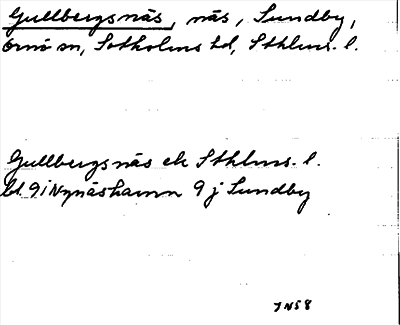 Gullbergsnäs, näs, Sundby,
Ornö sn, Sotholms hd, Sthlms. l.
Gullbergsnäs ek Sthlms. l.
bl. 9i Nynäshamn 9j Sundby
JN58